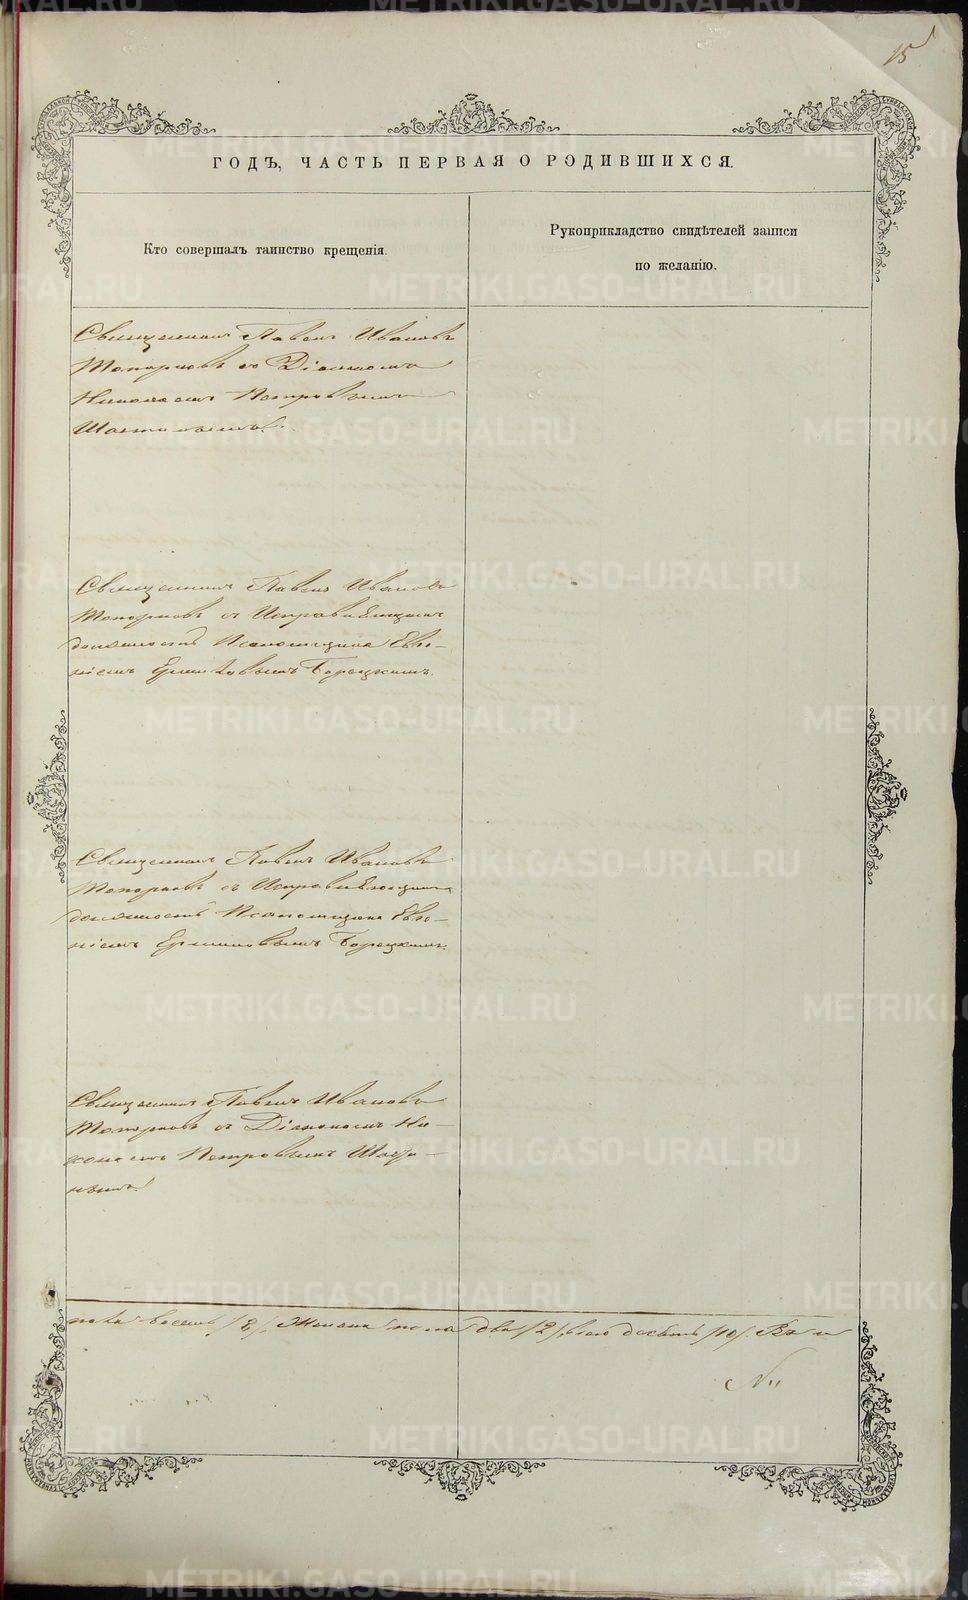 15
ГОДЪ, ЧАСТЬ ПЕРВАЯ О РОДИВШИХСЯ.
Кто совершалъ таинство крещенія.
Рукоприкладство свидѣтелей записи
по желанію.
Священникъ Павелъ Ивановъ
Топорковъ съ Діакономъ
Николаемъ Петровымъ
Священникъ Павелъ Ивановъ
Топорковъ съ Исправляющимъ
должность Псаломщика Евѳи-
міемъ Ермиловымъ Борецкимъ.
Священникъ Павелъ Ивановъ
Топорковъ съ Исправляющимъ
должность Псаломщика Евѳи-
міемъ Ермиловымъ Борецкимъ.
Священникъ Павелъ Ивановъ
Топорковъ съ Діакономъ Ни-
колаемъ Петровымъ
пола восемь /8/, Женска пола два /2/, всего десять /10/.
METRIKI.GASO-URAL.RU